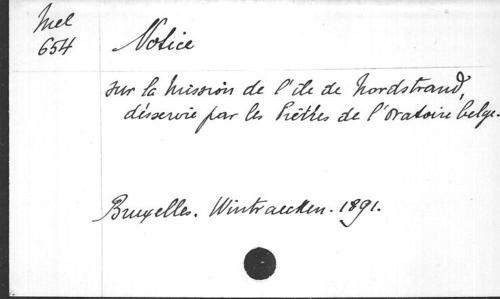 Mel
654
Notice
sur la Mission de l'île de Nordstrand,
désservie par les Prêtres de l'Oratoire belge.
Bruxelles. Wintraecken. 1891.